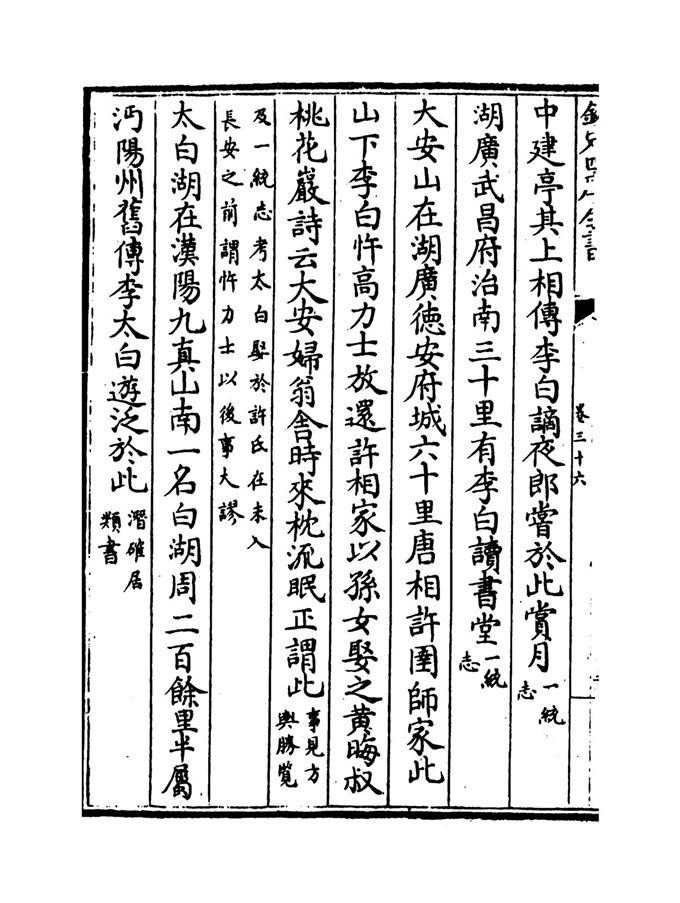 欽定四庫全書
卷三十六
中建亭其上相傳李白謫夜郎嘗於此賞月一統志
湖廣武昌府治南三十里有李白讀書堂一統志
大安山在湖廣徳安府城六十里唐相許圉師家此
山下李白忤高力士放還許相家以孫女娶之黄晦叔
桃花巖詩云大安婦翁舍時來枕流眠正謂此事見方輿勝覧
及一統志考太白娶於許氏在未入
長安之前謂忤力士以後事大謬
太白湖在漢陽九真山南一名白湖周二百餘里半屬
沔陽州舊傳李太白遊泛於此潛確居類書